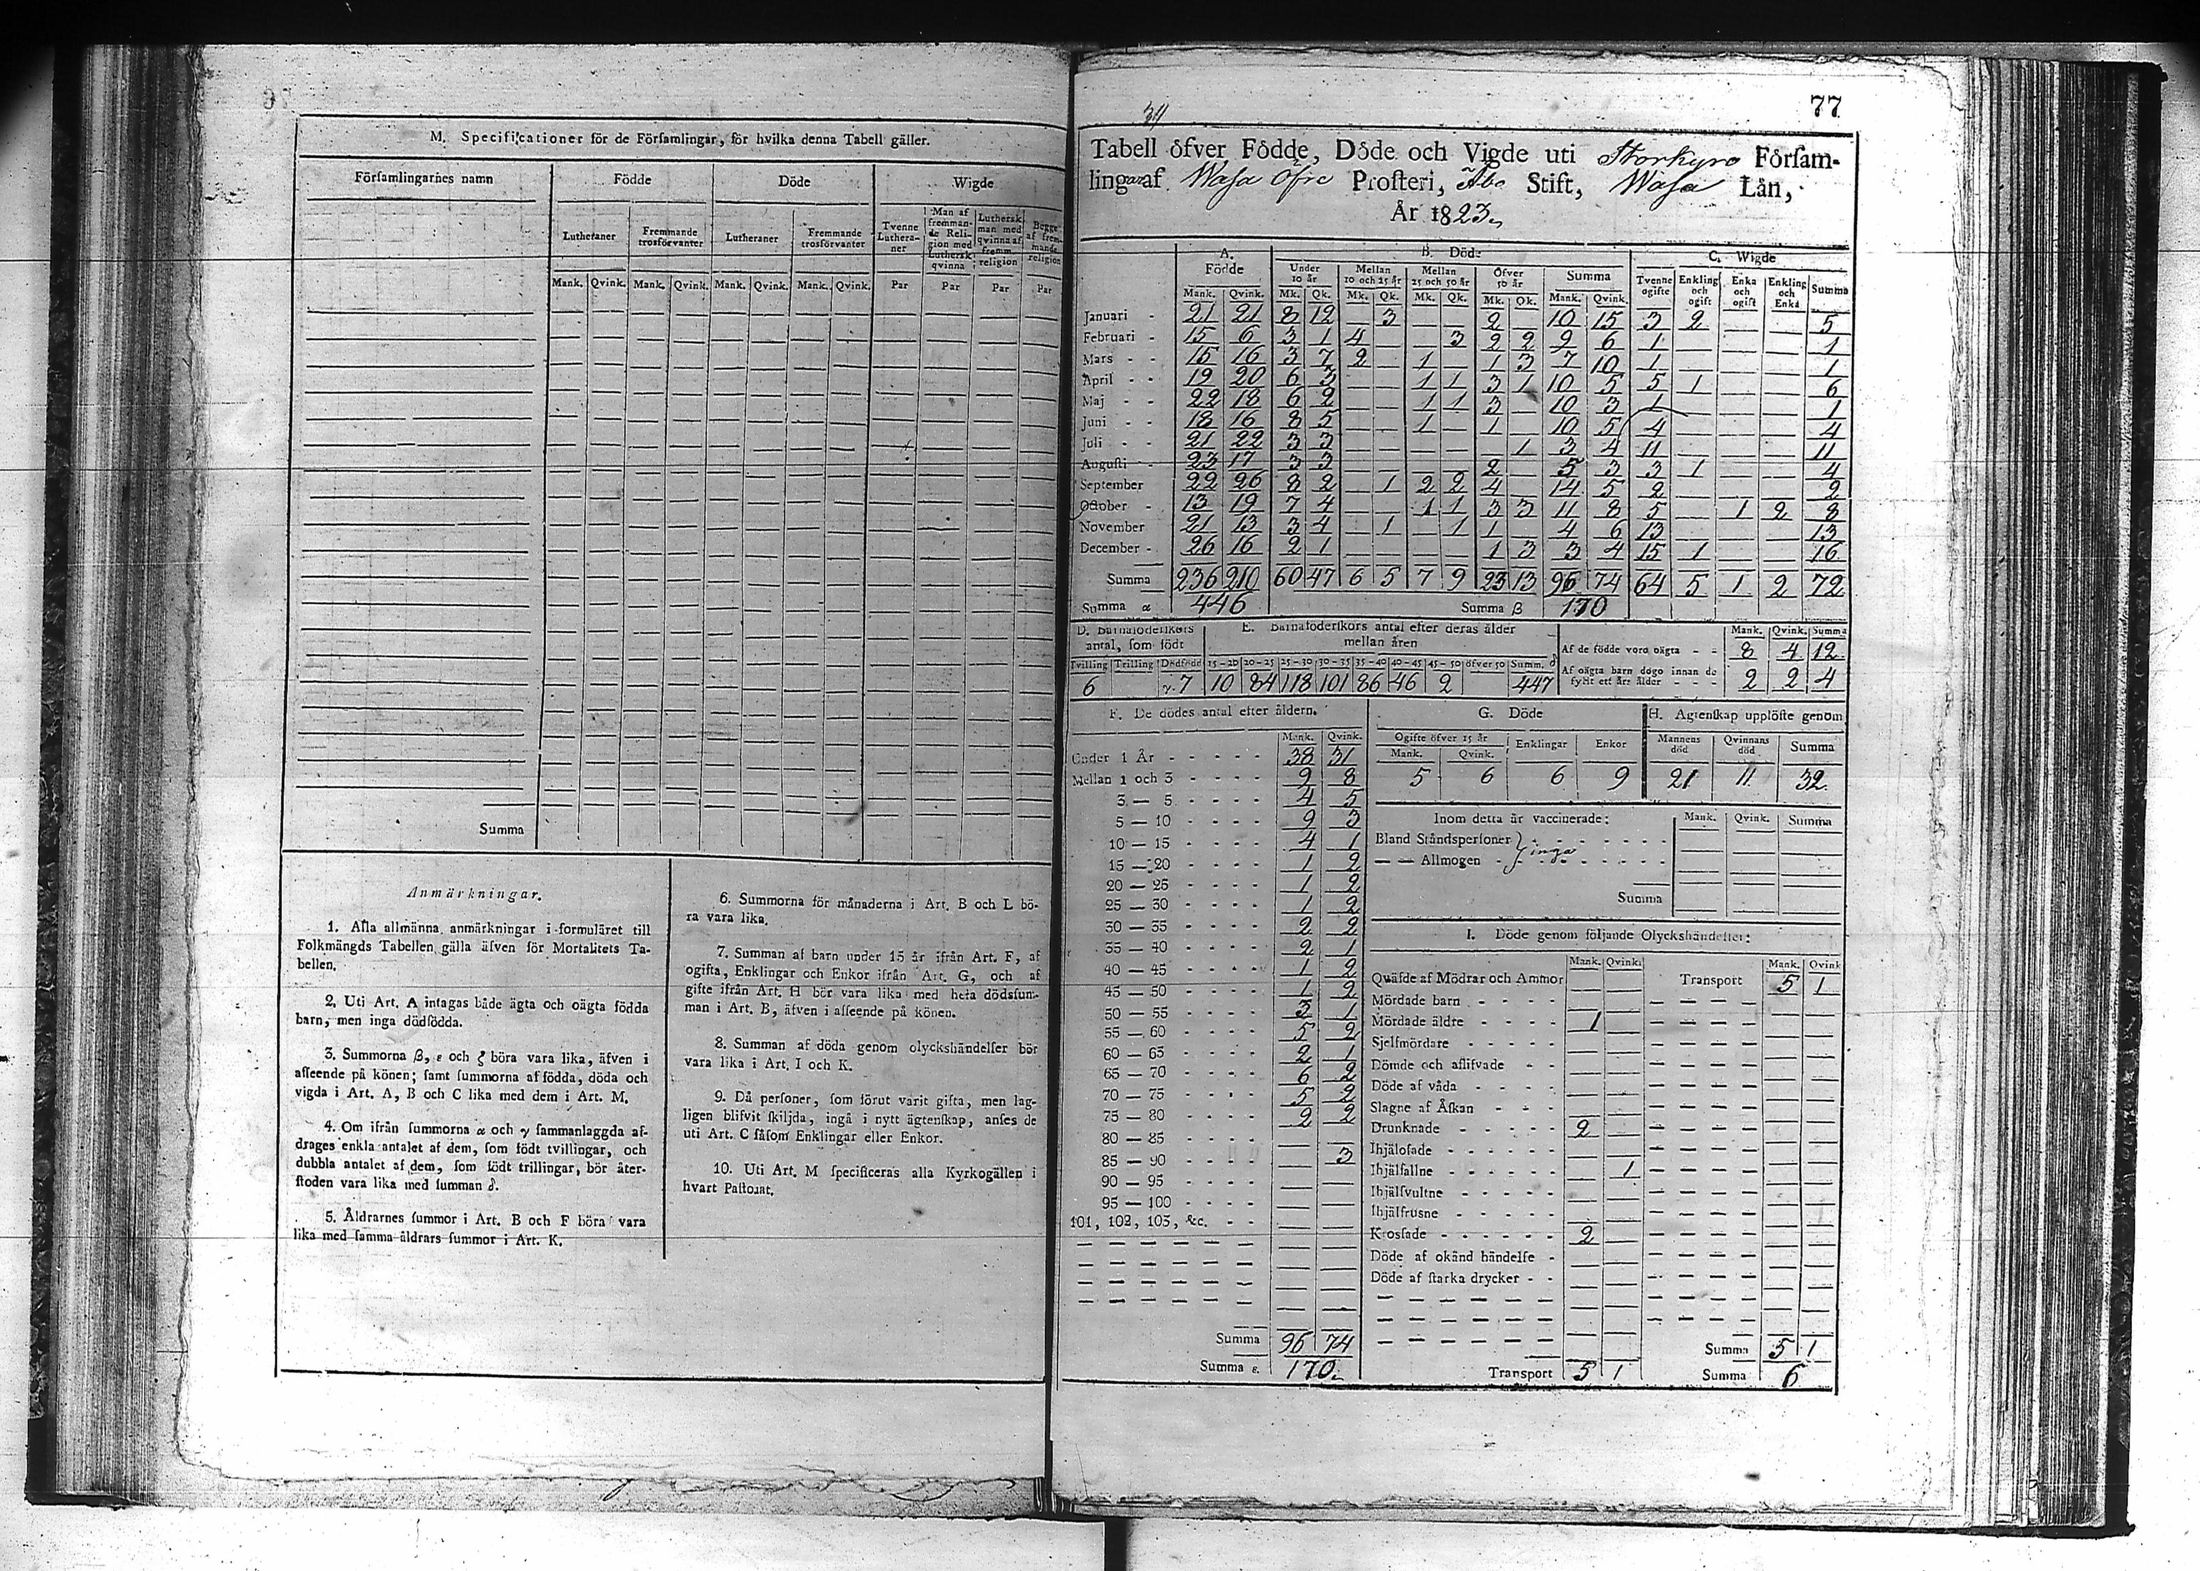 M. Specificationer för de Församlingar, för hvilka denna Tabell gäller.
Församlingarnes namn
Födde
Döde
Wigde
Lutheraner
Fremmande trosförvanter
Lutheraner
Fremmande trosförvanter
Tvenne Lutheraner
Man af fremmande Religion med Luthersk qvinna
Luthersk man med qvinna af fremm. religion
Begge af fremmande religion
Mank. Qvink. Mank. Qvink. Mank. Qvink. Mank. Qvink. Par Par Par Par
Summa
Anmärkningar.
1. Alla allmänna anmärkningar i formuläret till
Folkmängds Tabellen gälla äfven för Mortalitets Ta-
bellen.
2. Uti Art. A intagas både ägta och oägta födda
barn, men inga dödfödda.
3. Summorna β, ε och ζ böra vara lika, äfven i
afseende på könen; samt summorna af födda, döda och
vigda i Art. A, B och C lika med dem i Art. M.
4. Om ifrån summorna α och γ sammanlaggda af-
drages enkla antalet af dem, som födt tvillingar, och
dubbla antalet af dem, som födt trillingar, bör åter-
stoden vara lika med summan δ.
5. Åldrarnes summor i Art. B och F böra vara
lika med samma åldrars summor i Art. K.
6. Summorna för månaderna i Art. B och L bö-
ra vara lika.
7. Summan af barn under 15 år ifrån Art. F, af
ogifta, Enklingar och Enkor ifrån Art. G, och af
gifte ifrån Art. H bör vara lika med hela dödssum-
man i Art. B, äfven i afseende på könen.
8. Summan af döda genom olyckshändelser bör
vara lika i Art. I och K.
9. Då personer, som förut varit gifta, men lag-
ligen blifvit skiljda, ingå i nytt ägtenskap, anses de
uti Art. C såsom Enklingar eller Enkor.
10. Uti Art. M specificeras alla Kyrkogällen i
hvart Pastorat.
77
Tabell öfver Födde, Döde och Vigde uti Storkyro Försam-
lingar af Wasa öfre Prosteri, Åbo Stift, Wasa Län,
År 1823
A. Födde
B. Döde
C. Wigde
Under 10 år
Mellan 10 och 25 år
Mellan 25 och 50 år
Öfver 50 år
Summa
Tvenne ogifte
Enkling och ogift
Enka och ogift
Enkling och Enka
Summa
Mank. Qvink. Mk. Qk. Mk. Qk. Mk. Qk. Mk. Qk. Mank. Qvink.
Januari - 21 21 8 12 — 3 — — 2 — 10 15 3 2 — — 5
Februari - 15 6 3 1 4 — — 3 2 2 9 6 1 — — — 1
Mars - - 15 16 3 7 2 — 1 — 1 3 7 10 1 — — — 1
April - - 19 20 6 3 — — 1 1 3 1 10 5 5 1 — — 6
Maj - - 22 18 6 2 — — 1 1 3 — 10 3 1 — — — 1
Juni - - 18 16 8 5 — — 1 — 1 — 10 5 4 — — — 4
Juli - - 21 22 3 3 — — — — — 1 3 4 11 — — — 11
Augusti - 23 17 3 3 — — — — 2 — 5 3 3 1 — — 4
September 22 26 8 2 — 1 2 2 4 — 14 5 2 — — — 2
October - 13 19 7 4 — — 1 1 3 3 11 8 5 — 1 2 8
November 21 13 3 4 — 1 — 1 1 — 4 6 13 — — — 13
December - 26 16 2 1 — — — — 1 3 3 4 15 1 — — 16
Summa 236 210 60 47 6 5 7 9 23 13 96 74 64 5 1 2 72
Summa α 446 Summa β 170
D. Barnaföderskors antal, som födt
E. Barnaföderskors antal efter deras ålder mellan åren
Mank. Qvink. Summa
Af de födde voro oägta - - 8 4 12
Tvilling Trilling Dödfödd 15-20 20-25 25-30 30-35 35-40 40-45 45-50 öfver 50 Summ. δ
Af oägta barn dogo innan de
fyllt ett års ålder - - - 2 2 4
6 γ. 7 10 84 118 101 86 46 2 447
F. De dödes antal efter åldern.
Mank. Qvink.
Under 1 År - - - - - 38 31
Mellan 1 och 3 - - - - 9 8
3 — 5 - - - - 4 5
5 — 10 - - - - 9 3
10 — 15 - - - - 4 1
15 — 20 - - - - 1 2
20 — 25 - - - - 1 2
25 — 30 - - - - 1 2
30 — 35 - - - - 2 2
35 — 40 - - - - 2 1
40 — 45 - - - - 1 2
45 — 50 - - - - 1 2
50 — 55 - - - - 3 1
55 — 60 - - - - 5 2
60 — 65 - - - - 2 1
65 — 70 - - - - 6 2
70 — 75 - - - - 5 2
75 — 80 - - - - 2 2
80 — 85 - - - - — —
85 — 90 - - - - — 3
90 — 95 - - - - — —
95 — 100 - - - - — —
101, 102, 103, &c. - - — —
Summa 96 74
Summa ε. 170
G. Döde
Ogifte öfver 15 år
Enklingar
Enkor
Mank. Qvink.
5 6 6 9
H. Agtenskap upplöste genom
Mannens död
Qvinnans död
Summa
21 11 32
Inom detta år vaccinerade:
Mank. Qvink. Summa
Bland Ståndspersoner
— — Allmogen
inga
Summa
I. Döde genom följande Olyckshändelser:
Mank. Qvink. Mank. Qvink
Quäfde af Mödrar och Ammor — — Transport 5 1
Mördade barn - - - - — —
Mördade äldre - - - - 1 —
Sjelfmördare - - - - — —
Dömde och aflifvade - - — —
Döde af våda - - - - — —
Slagne af Åskan - - - — —
Drunknade - - - - - 2 —
Ihjälosade - - - - - — —
Ihjälfallne - - - - - — 1
Ihjälsvultne - - - - - — —
Ihjälfrusne - - - - - — —
Krossade - - - - - - 2 —
Döde af okänd händelse - — —
Döde af starka drycker - - — —
Summa 5 1
Transport 5 1 Summa 6